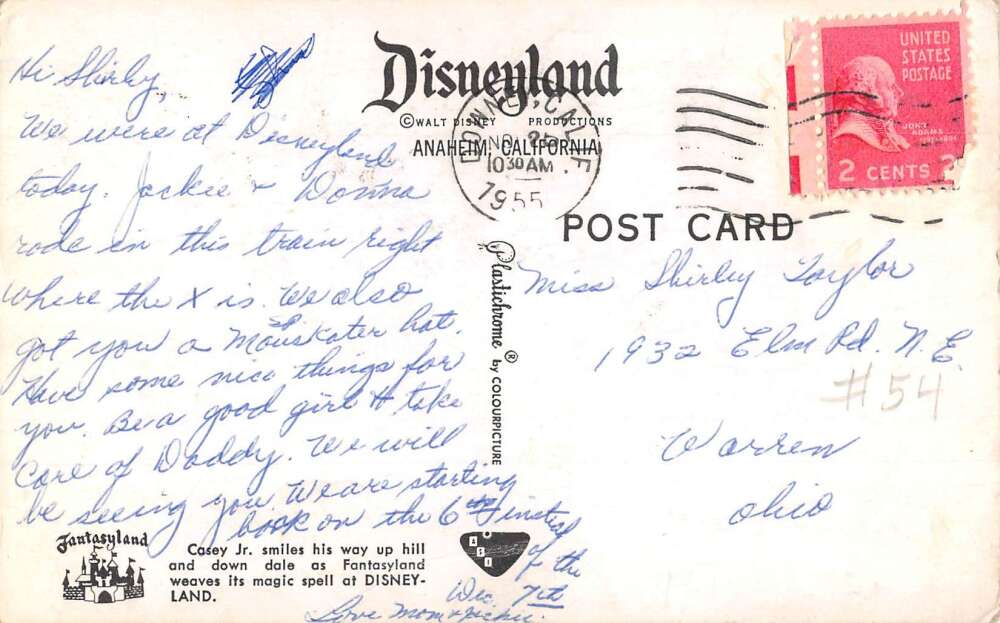 Hi Shirly,
We were at Disneyland
today. Jackie + Donna
rode in this train right
where the X is. We also
got you a Mouskater hat.
Have some nice things for
you. Be a good girl & take
care of Daddy. We will
be seeing you. We are starting
back on the 6th instead
of the
7th
Love Mom &
Fantasyland
Casey Jr. smiles his way up hill
and down dale as Fantasyland
weaves its magic spell at DISNEY-
LAND.
Disneyland
©WALT DISNEY PRODUCTIONS
ANAHEIM, CALIFORNIA
DOWNEY, CALIF.
NOV 25
10 30 AM
1955
UNITED
STATES
POSTAGE
JOHN
ADAMS
2 CENTS 2
POST CARD
Plastichrome ® by COLOURPICTURE
Miss Shirley Taylor
1932 Elm Rd. N.E.
#54
Warren
Ohio